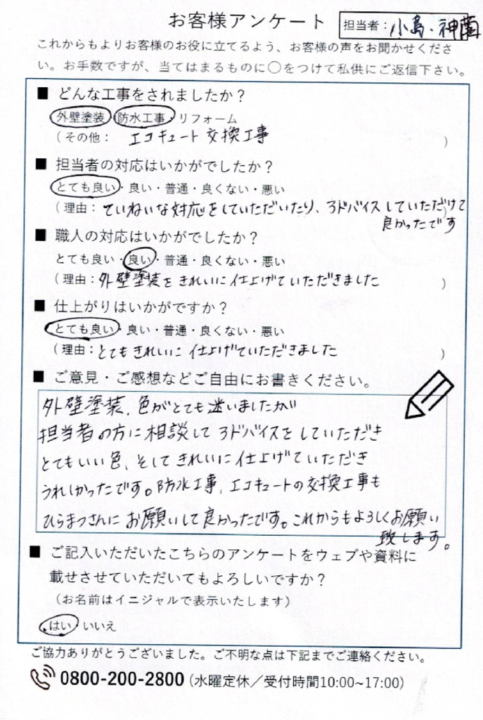 お客様アンケート
担当者: 小島・神薗
これからもよりお客様のお役に立てるよう、お客様の声をお聞かせくださ
い。お手数ですが、当てはまるものに〇をつけて私供にご返信下さい。
■ どんな工事をされましたか？
外壁塗装・防水工事・リフォーム
(その他: エコキュート交換工事 )
■ 担当者の対応はいかがでしたか？
とても良い・良い・普通・良くない・悪い
(理由: ていねいな対応をしていただいたり、アドバイスしていただけて
良かったです
■ 職人の対応はいかがでしたか？
とても良い・良い・普通・良くない・悪い
(理由: 外壁塗装をきれいに仕上げていただきました )
■ 仕上がりはいかがですか？
とても良い・良い・普通・良くない・悪い
(理由: とてもきれいに仕上げていただきました )
■ ご意見・ご感想などご自由にお書きください。
外壁塗装、色がとても迷いましたが
担当者の方に相談してアドバイスをしていただき
とてもいい色、そしてきれいに仕上げていただき
うれしかったです。防水工事、エコキュートの交換工事も
ひらまつさんにお願いして良かったです。これからもよろしくお願い
致します。
■ ご記入いただいたこちらのアンケートをウェブや資料に
載せさせていただいてもよろしいですか？
(お名前はイニシャルで表示いたします)
はい・いいえ
ご協力ありがとうございました。ご不明な点は下記までご連絡ください。
0800-200-2800 (水曜定休／受付時間10:00~17:00)